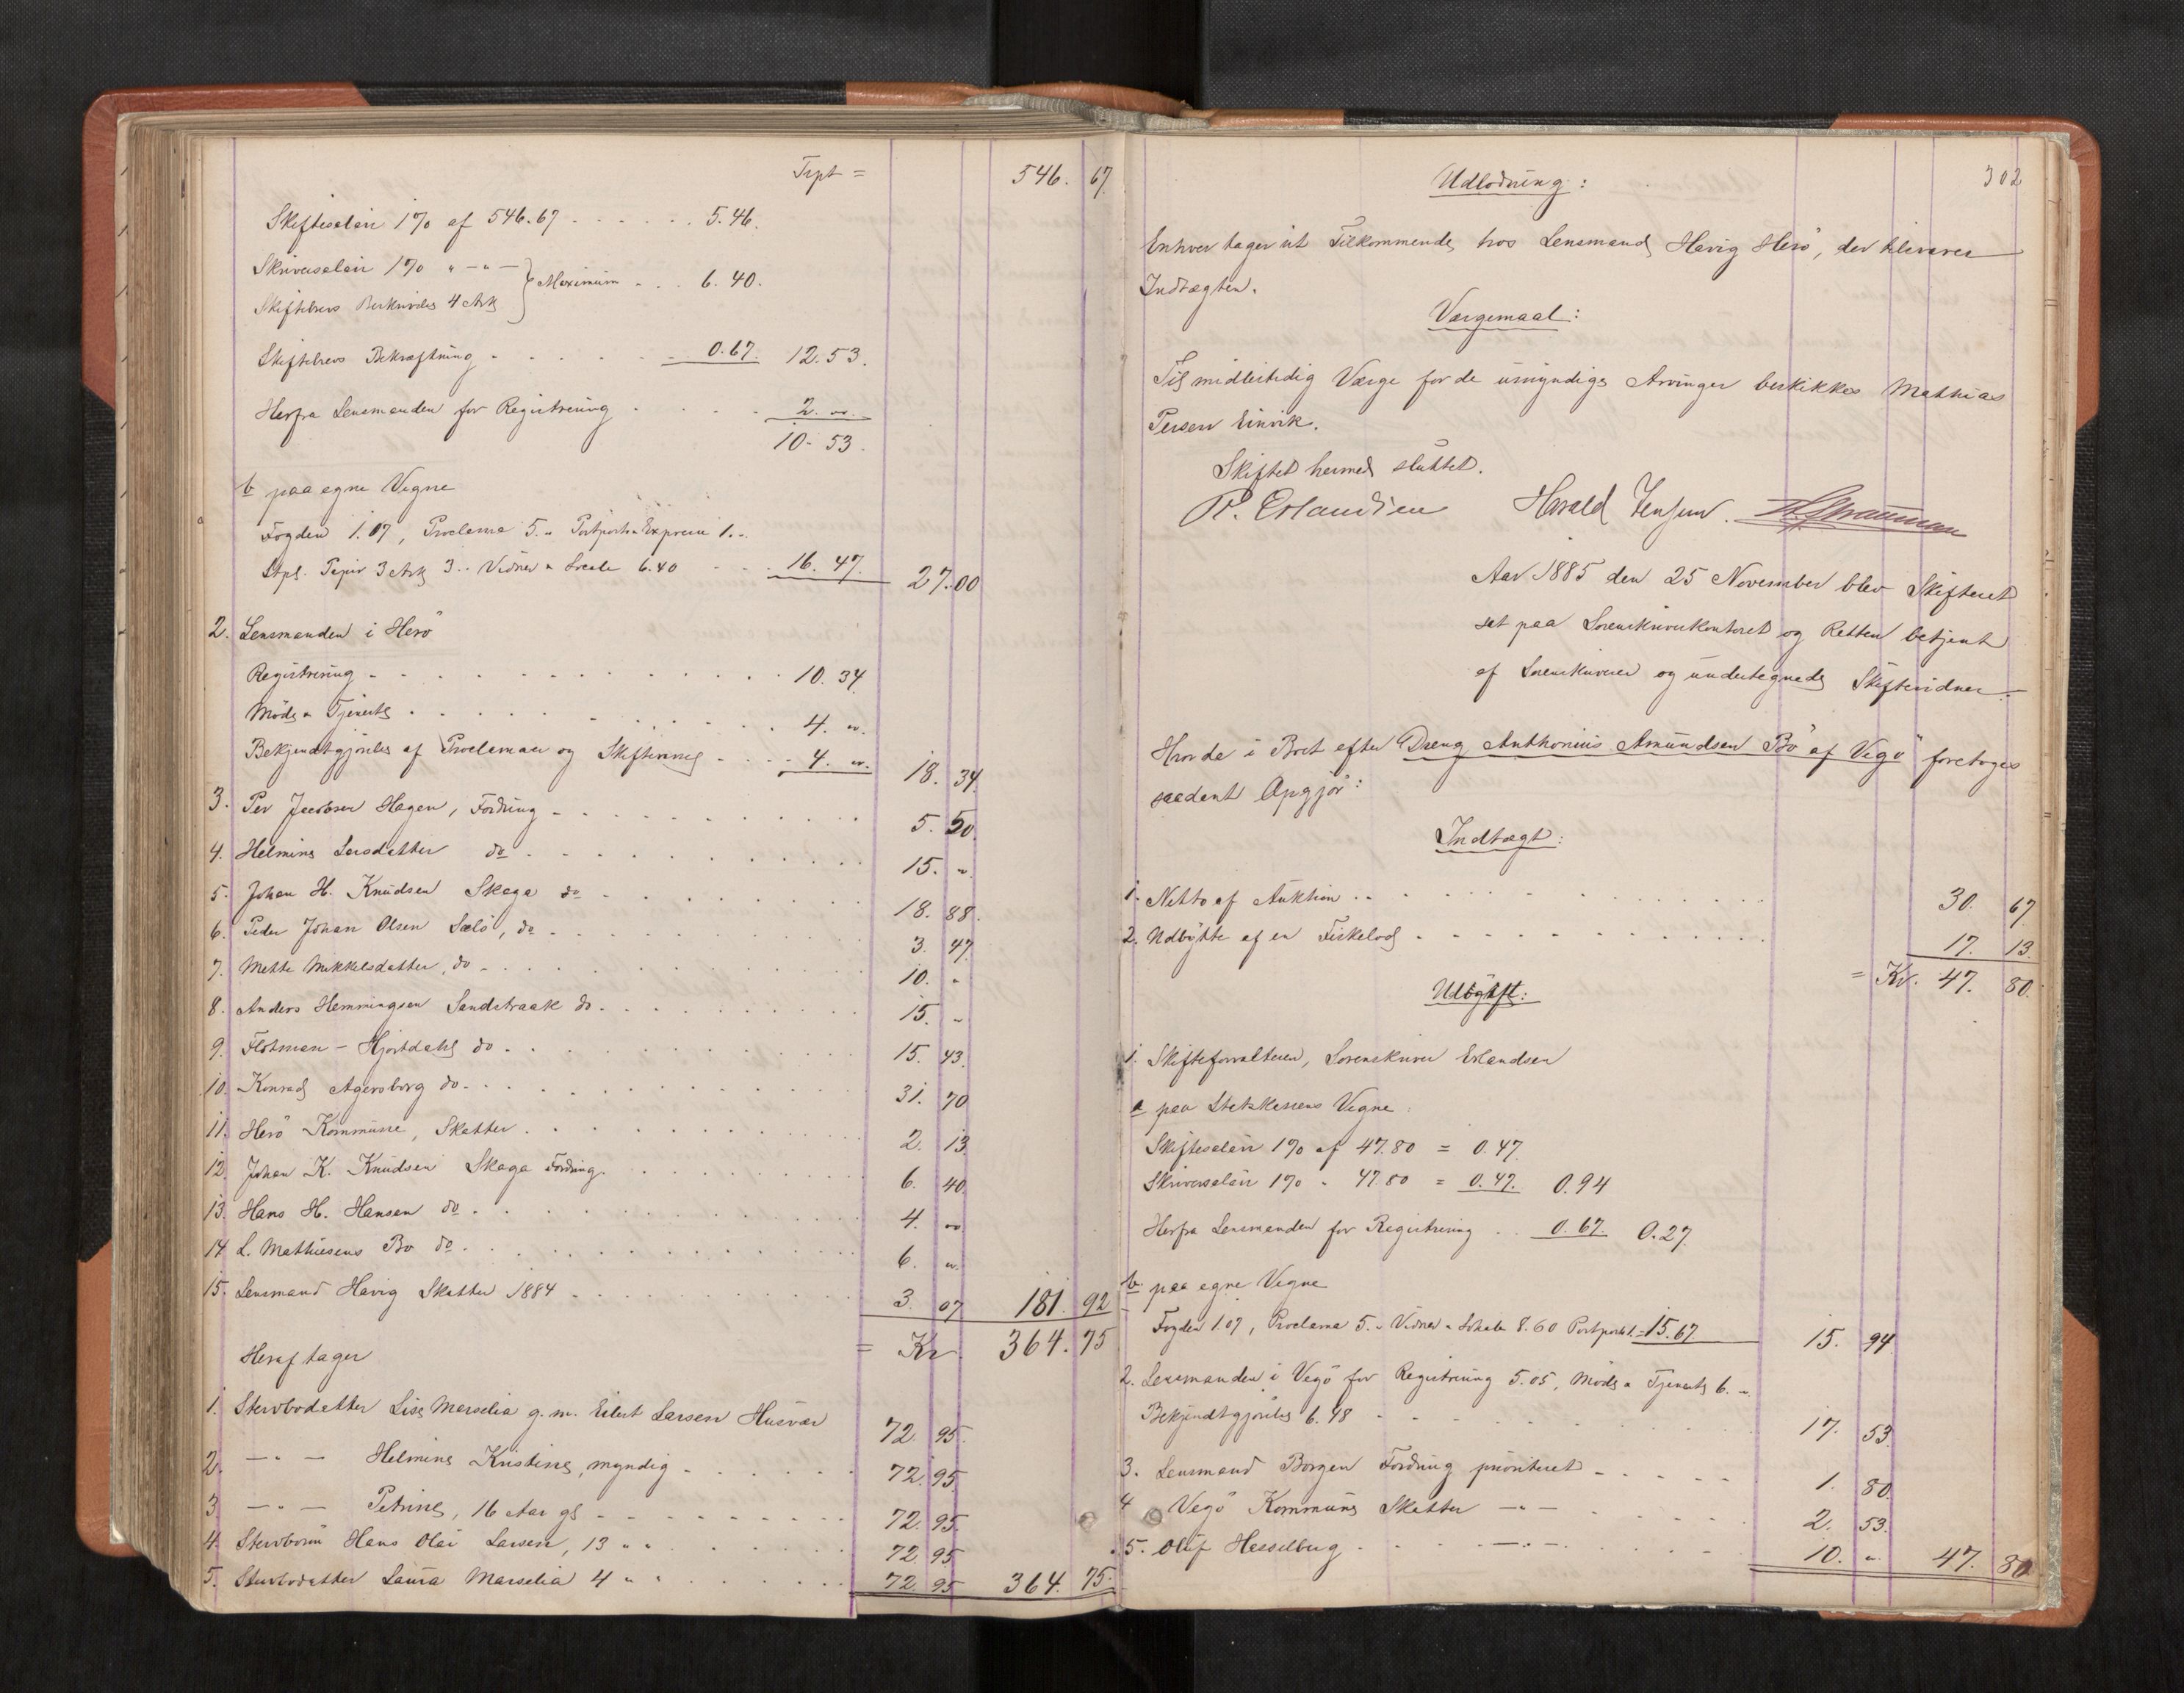 Trpt = 546. 67
Skiftesalair 1% af 546.67 5.46.
Skriversalair 1% " — " — } Maximum 6.40.
Skiftebrevs Beskrivelse 4 Ark
Skiftebrevs Bekræftning 0.67. 12.53.
Herfra Lensmanden for Registrering 2. "
10. 53.
b paa egne Vegne
Fogden 1.07, Proclama 5. " Portport. Expresse 1. "
Stpl. Papir 3 Ark 3. " Vidner & Locale 6.40 16.47. 27.00
2. Lensmanden i Herö
Registrering 10.34
Möde & Tjeneste 4. "
Bekjendtgjörelse af Proclamaer og Skiftevarsel 4. " 18. 34.
3. Per Jacobsen Hagen, Fordring 5. 50.
4. Helmine Larsdatter do 15. "
5. Johan H. Knudsen Skaga do 18. 88.
6. Peder Johan Olsen Sælö, do 3. 47.
7. Mette Mikkelsdatter, do 10. "
8. Anders Hemmingsen Sandstraak do 15. "
9. Flötman - Hjortdahl do 15. 43.
10. Konrad Agersborg do 31. 70
11. Herö Kommune, Skatter 2. 13.
12. Johan K. Knudsen Skaga Fordring 6. 40
13. Hans H. Hansen do 4. "
14. L. Mathiesens Bo do 6. "
15. Lensmand Havig Skatter 1884 3. 07 181. 92
= Kr. 364. 75
Heraf tager
1. Stervbodatter Lise Marselia g. m. Eilert Larsen Husvær 72. 95.
2. — " — Helmine Kristine, myndig 72. 95.
3. — " — Petrine, 16 Aar gl 72. 95.
4. Stervbosön Hans Olai Larsen, 13 " " 72. 95
5. Stervbodatter Laura Marselia 4 " " 72. 95 364. 75.
302
Udlodning:
Enhver tager sit Tilkommende hos Lensmand Havig Herö, der hæver
Indtægten.
Værgemaal:
Til midlertidig Værge for de umyndige Arvinger beskikkes Mathias
Persen Einvik.
Skiftet hermed sluttet.
R. Erlandsen Harald Jensen.
Aar 1885 den 25 November blev Skifteret
sat paa Sorenskriverkontoret og Retten betjent
af Sorenskriveren og undertegnede Skiftevidner.—
Hvorda i Boet efter Dreng Anthonius Amundsen Bö af Vegö foretoges
saadant Opgjör:
Indtægt:
1. Netto af Auktion 30. 67
2. Udbytte af en Fiskelod 17. 13.
= Kr. 47. 80.
Udgift:
1. Skifteforvalteren, Sorenskriver Erlandsen
a paa Statskassens Vegne:
Skiftesalair 1% af 47.80 = 0.47.
Skriversalair 1% " 47.80 = 0.47. 0.94
Herfra Lensmanden for Registrering 0.67 0.27
b. paa egne Vegne
Fogden 1.07, Proclama 5. " Vidner & Lokale 8.60 Portport 1. " 15.67 15. 94.
2. Lensmanden i Vegö for Registrering 5.05, Möde & Tjeneste 6. "
Bekjendtgjörelse 6.48 17. 53.
3. Lensmand Borgen Fordring prioriteret 1. 80.
4 Vegö Kommune Skatter — " — 2. 53.
5. Oluf Hesselberg — " — 10. " 47. 80